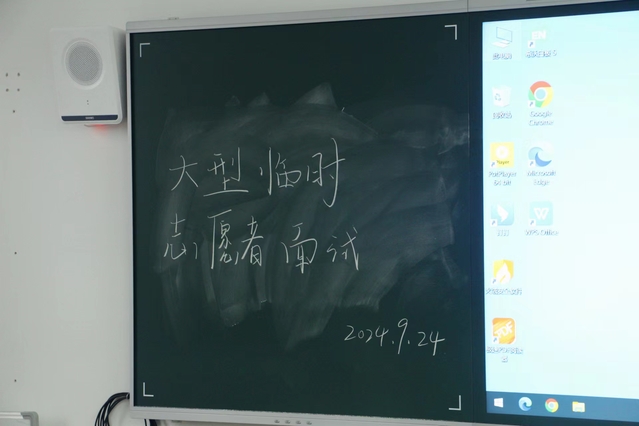 大型临时
志愿者面试
2024.9.24
Google Chrome
PotPlayer 64 bit
Microsoft Edge
WPS Office